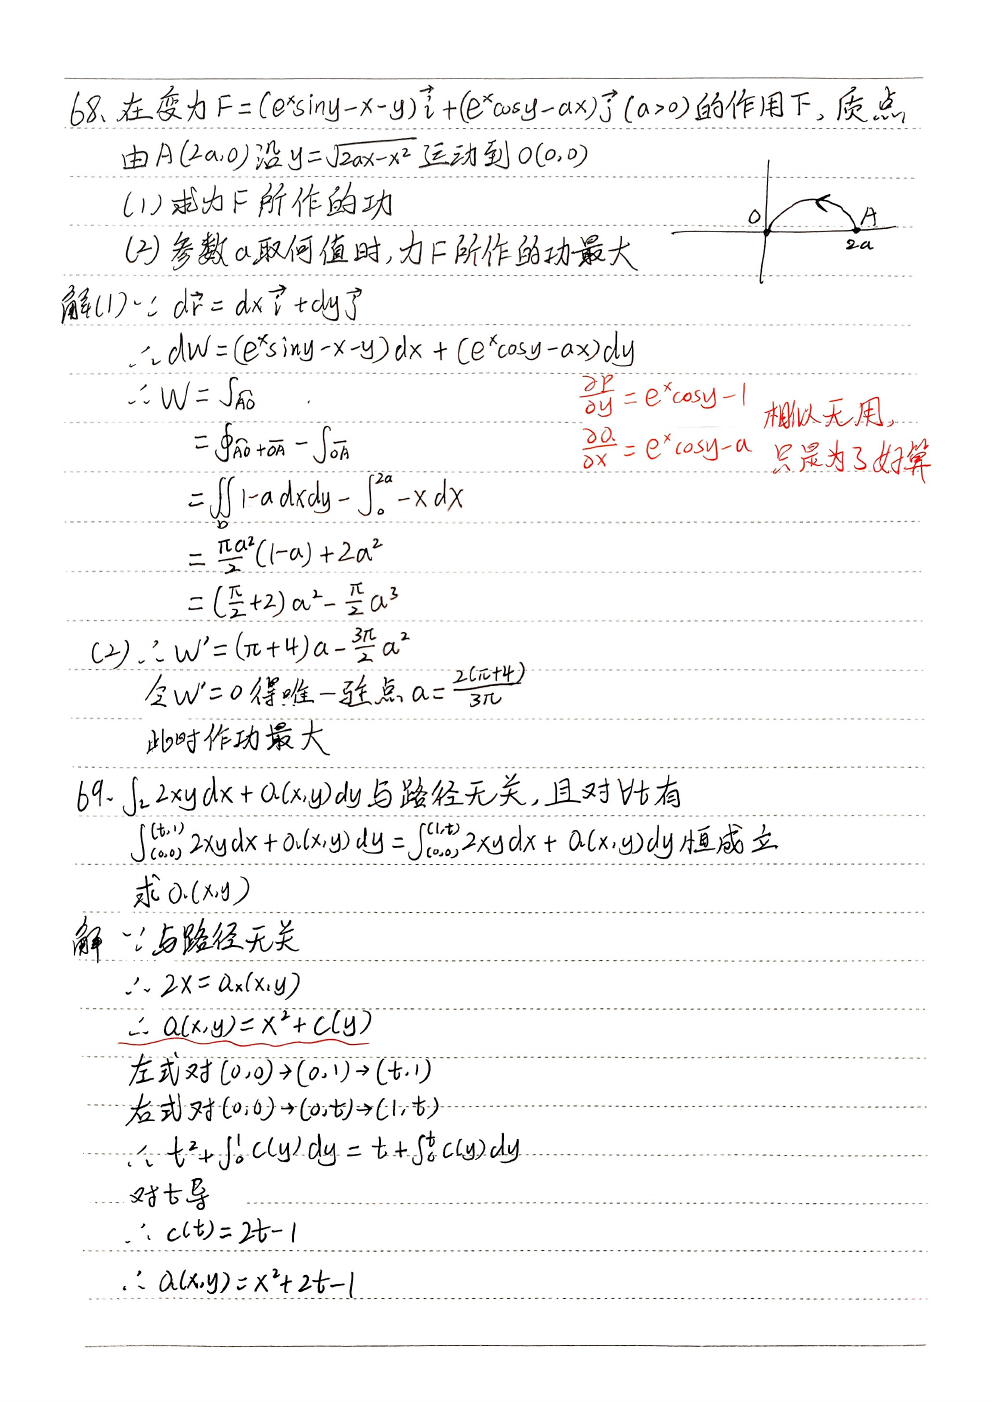 68、在变力F=(eˣsiny-x-y)i⃗+(eˣcosy-ax)j⃗ (a>0)的作用下,质点
由A(2a,0)沿y=√(2ax-x²)运动到O(0,0)
(1)求力F所作的功
(2)参数a取何值时,力F所作的功最大
O A
2a
解(1)∵ dr⃗=dx i⃗+dy j⃗
∴dW=(eˣsiny-x-y)dx+(eˣcosy-ax)dy
∴W=∫AO
=∮AO+OA-∫OA
=∬D 1-a dxdy-∫₀²ᵃ-x dx
=πa²/2(1-a)+2a²
=(π/2+2)a²-π/2 a³
∂P/∂y=eˣcosy-1
∂Q/∂x=eˣcosy-a
相似无用,
只是为了好算
(2)∴W'=(π+4)a-3π/2 a²
令W'=0得唯一驻点a=2(π+4)/3π
此时作功最大
69、∫L 2xydx+Q(x,y)dy与路径无关,且对∀t有
∫(0,0)(t,1) 2xydx+Q(x,y)dy=∫(0,0)(1,t) 2xydx+Q(x,y)dy恒成立
求Q(x,y)
解 ∵与路径无关
∴2x=Qx(x,y)
∴Q(x,y)=x²+C(y)
左式对(0,0)→(0,1)→(t,1)
右式对(0,0)→(0,t)→(1,t)
∴t²+∫₀¹C(y)dy=t+∫₀ᵗC(y)dy
对t导
∴C(t)=2t-1
∴Q(x,y)=x²+2t-1